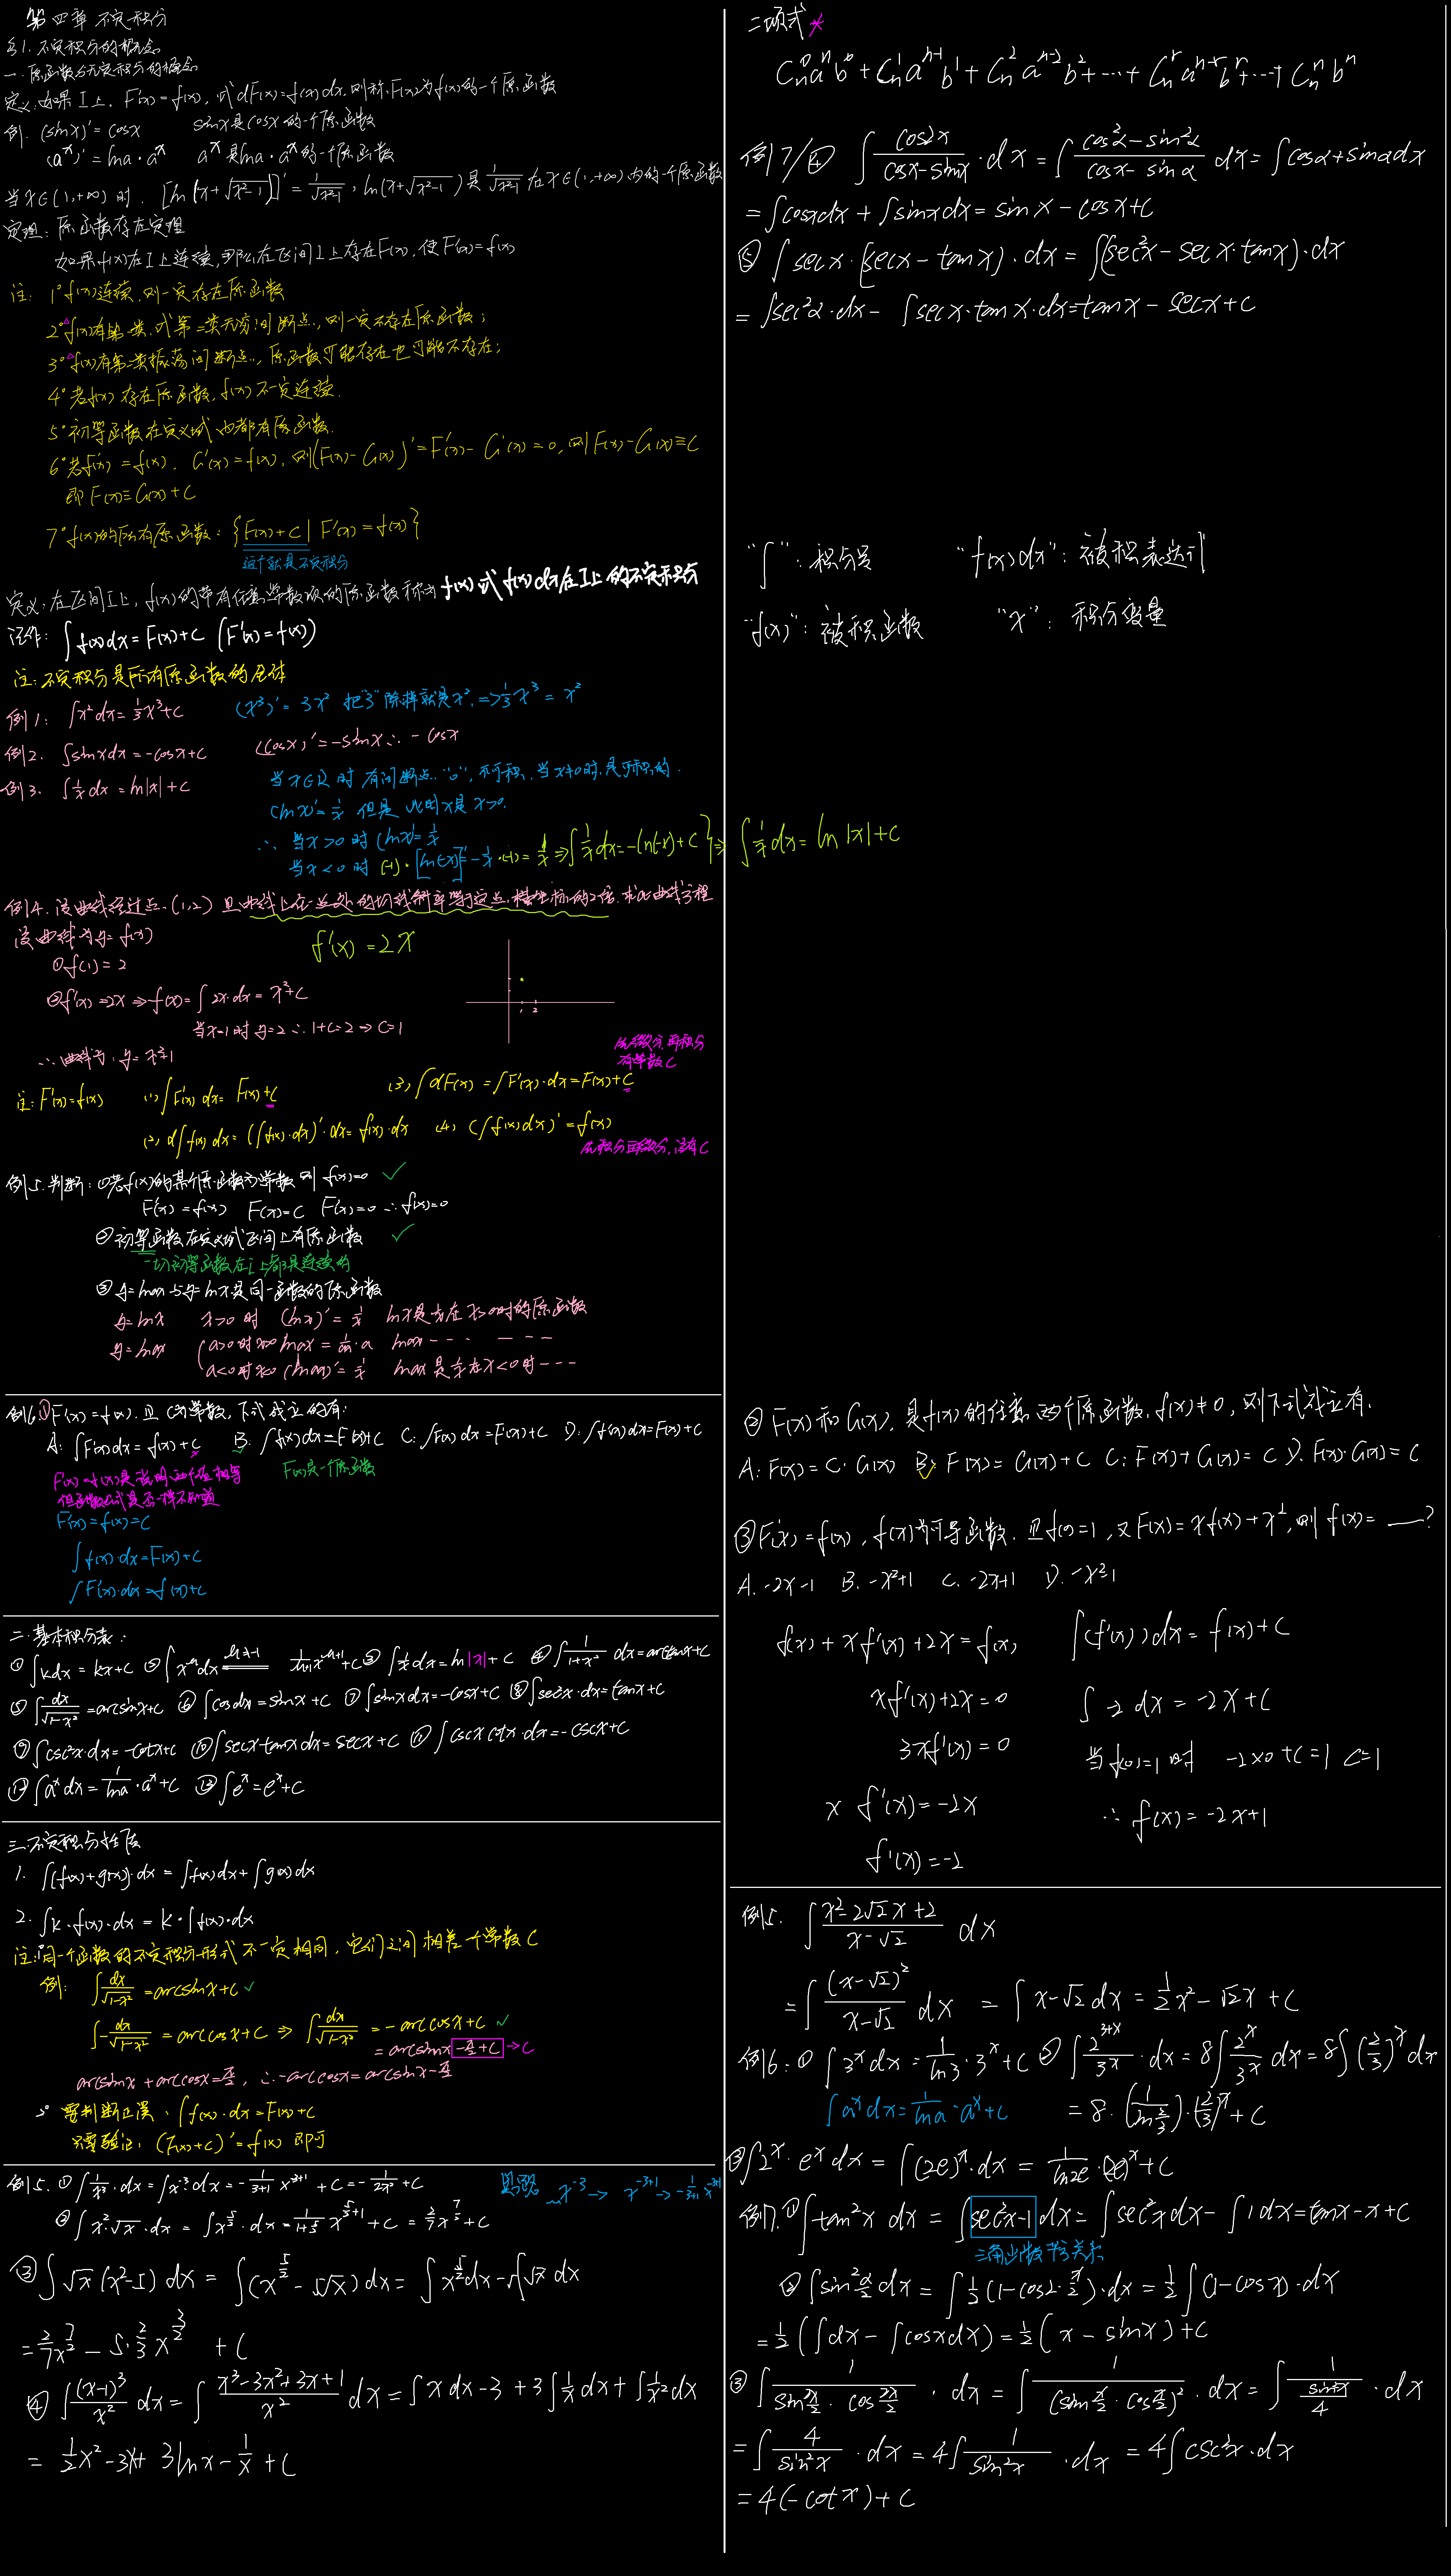 第四章 不定积分
§1. 不定积分的概念
一. 原函数与不定积分的概念
定义: 如果 I上, F'(x)=f(x), 或 dF(x)=f(x)dx, 则称F(x)为f(x)的一个原函数
例. (sinx)'=cosx sinx是cosx的一个原函数
(a^x)'=lna·a^x a^x是lna·a^x的一个原函数
当x∈(1,+∞)时, [ln(x+√(x²-1))]'=1/√(x²-1), ln(x+√(x²-1))是1/√(x²-1)在x∈(1,+∞)内的一个原函数
定理: 原函数存在定理
如果f(x)在I上连续,那么在区间I上存在F(x),使F'(x)=f(x)
注: 1° f(x)连续,则一定存在原函数
2°△ f(x)有第一类,或第二类无穷间断点,则一定不存在原函数;
3°△ f(x)有第二类振荡间断点,原函数可能存在也可能不存在;
4° 若f(x)存在原函数,f(x)不一定连续.
5° 初等函数在定义域内都有原函数.
6° 若F'(x)=f(x), G'(x)=f(x), 则(F(x)-G(x))'=F'(x)-G'(x)=0, 则F(x)-G(x)≡C
即F(x)=G(x)+C
7° f(x)的所有原函数: {F(x)+C | F'(x)=f(x)}
这个就是不定积分
定义: 在区间I上, f(x)的带有任意常数项的原函数称为f(x)或f(x)dx在I上的不定积分
记作: ∫f(x)dx=F(x)+C (F'(x)=f(x))
注: 不定积分是所有原函数的全体
例1: ∫x²dx=1/3x³+C (x³)'=3x² 把"3"除掉就是x², =>1/3x³=x²
例2. ∫sinxdx=-cosx+C (cosx)'=-sinx ∴ -cosx
例3. ∫1/x dx=ln|x|+C 当x∈R时有间断点"0",不可积,当x≠0时,是可积的.
(lnx)'=1/x 但是此时x是x>0.
∴ 当x>0时(lnx)'=1/x
当x<0时 (-1)·[ln(-x)]'=-1/x·(-1)=1/x ⇒∫1/x dx=-ln(-x)+C }⇒ ∫1/x dx=ln|x|+C
例4. 设曲线经过点(1,2)且曲线上任一点处的切线斜率等于定点横坐标的2倍.求此曲线方程
设曲线为y=f(x) f'(x)=2x
①f(1)=2
②f'(x)=2x⇒f(x)=∫2x·dx=x²+C
1 2
当x=1时y=2∴1+C=2⇒C=1
∴曲线为:y=x²+1
先微分,再积分
有常数C
注: F'(x)=f(x) (1)∫F'(x)dx=F(x)+C (3)∫dF(x)=∫F'(x)·dx=F(x)+C
(2) d∫f(x)dx=(∫f(x)·dx)'·dx=f(x)·dx (4) (∫f(x)dx)'=f(x)
先积分再微分,没有C
例5. 判断: ①若f(x)的某个原函数为常数则f(x)=0 ✓
F'(x)=f(x) F(x)=C F'(x)=0 ∴f(x)=0
②初等函数在定义域区间上有原函数 ✓
一切初等函数在I上都是连续的
③y=lnax与y=lnx是同一函数的原函数
y=lnx x>0时 (lnx)'=1/x lnx是1/x在x>0时的原函数
y=lnax {a>0时x>0 lnax=1/ax·a lnax--- ---
a<0时x<0 (lnax)'=1/x lnax是1/x在x<0时---
例6.①F'(x)=f(x).且C为常数,下式成立的有:
A: ∫F'(x)dx=f(x)+C B: ∫f(x)dx=F(x)+C C: ∫F(x)dx=F(x)+C D: ∫f'(x)dx=F(x)+C
F(x)是一个原函数
F'(x)=f(x)是说明两个值相等
但函数公式是否一样不知道
F'(x)=f(x)=C
∫f(x)·dx=F(x)+C
∫F'(x)·dx=f(x)+C
二. 基本积分表:
①∫kdx=kx+C ②∫x^μdx μ≠-1 1/(μ+1)x^(μ+1)+C ③∫1/x dx=ln|x|+C ④∫1/(1+x²) dx=arctanx+C
⑤∫dx/√(1-x²)=arcsinx+C ⑥∫cosdx=sinx+C ⑦∫sinxdx=-cosx+C ⑧∫sec²x·dx=tanx+C
⑨∫csc²x·dx=-cotx+C ⑩∫secx·tanxdx=secx+C ⑪∫cscxcotx·dx=-cscx+C
⑫∫a^x dx=1/lna·a^x+C ⑬∫e^x=e^x+C
三. 不定积分性质
1. ∫(f(x)+g(x))·dx=∫f(x)dx+∫g(x)dx
2. ∫k·f(x)·dx=k·∫f(x)·dx
注:1°同一个函数的不定积分形式不一定相同,它们之间相差一个常数C
例: ∫dx/√(1-x²)=arcsinx+C ✓
∫-dx/√(1-x²)=arccosx+C ⇒ ∫dx/√(1-x²)=-arccosx+C ✓
=arcsinx-π/2+C →C
arcsinx+arccosx=π/2, ∴-arccosx=arcsinx-π/2
2° 要判断正误,∫f(x)·dx=F(x)+C
只需验证: (F(x)+C)'=f(x) 即可
例5. ①∫1/x³·dx=∫x^-3 dx=-1/(3+1) x^(-3+1)+C=-1/2x²+C 思路 x^-3→ x^(-3+1)→-1/(3+1)x^(-3+1)
②∫x²√x·dx=∫x^(5/2)·dx=1/(1+5/2) x^(5/2+1)+C=2/7x^(7/2)+C
③∫√x(x²-5)dx=∫(x^(5/2)-5√x)dx=∫x^(5/2)dx-5∫√x dx
=2/7x^(7/2)-5·2/3x^(3/2)+C
④∫(x-1)³/x² dx=∫(x³-3x²+3x+1)/x² dx=∫x dx-3+3∫1/x dx+∫1/x² dx
=1/2x²-3x+3lnx-1/x+C
二项式*
C_n^0 a^n b^0+C_n^1 a^(n-1) b^1+C_n^2 a^(n-2) b²+…+C_n^r a^(n-r) b^r+…+C_n^n b^n
例7/④ ∫cos2x/(cosx-sinx)·dx=∫(cos²x-sin²x)/(cosx-sinx) dx=∫cosx+sinxdx
=∫cosxdx+∫sinxdx=sinx-cosx+C
⑤∫secx·(secx-tanx)·dx=∫(sec²x-secx·tanx)·dx
=∫sec²x·dx-∫secx·tanx·dx=tanx-secx+C
"∫": 积分号 "f(x)dx": 被积表达式
"f(x)": 被积函数 "x": 积分变量
②F(x)和G(x),是f(x)的任意两个原函数,f(x)≠0,则下式成立有.
A: F(x)=C·G(x) B: F(x)=G(x)+C C: F(x)+G(x)=C D. F(x)·G(x)=C
③F'(x)=f(x),f(x)为可导函数.且f(0)=1,又F(x)=xf(x)+x²,则f(x)=___?
A. -2x-1 B. -x²+1 C. -2x+1 D. -x²-1
f(x)+xf'(x)+2x=f(x) ∫(f'(x))dx=f(x)+C
xf'(x)+2x=0 ∫-2dx=-2x+C
3xf'(x)=0 当f(0)=1时 -2×0+C=1 C=1
x f'(x)=-2x ∴f(x)=-2x+1
f'(x)=-2
例5. ∫(x²-2√2x+2)/(x-√2) dx
=∫(x-√2)²/(x-√2) dx=∫x-√2dx=1/2x²-√2x+C
例6: ①∫3^x dx=1/ln3·3^x+C ②∫2^(3+x)/3^x·dx=8∫2^x/3^x dx=8∫(2/3)^x dx
∫a^x dx=1/lna·a^x+C =8·(1/ln(2/3))·(2/3)^x+C
③∫2^x·e^x dx=∫(2e)^x·dx=1/ln2e·(2e)^x+C
例7.①∫tan²x dx=∫sec²x-1dx=∫sec²xdx-∫1dx=tanx-x+C
三角函数平方关系
②∫sin²x/2dx=∫1/2(1-cos2·x/2)·dx=1/2∫(1-cosx)·dx
=1/2(∫dx-∫cosxdx)=1/2(x-sinx)+C
③∫1/(sin²x/2·cos²x/2)·dx=∫1/(sinx/2·cosx/2)²·dx=∫1/(sin²x/4)·dx
=∫4/sin²x·dx=4∫1/sin²x·dx=4∫csc²x·dx
=4(-cotx)+C